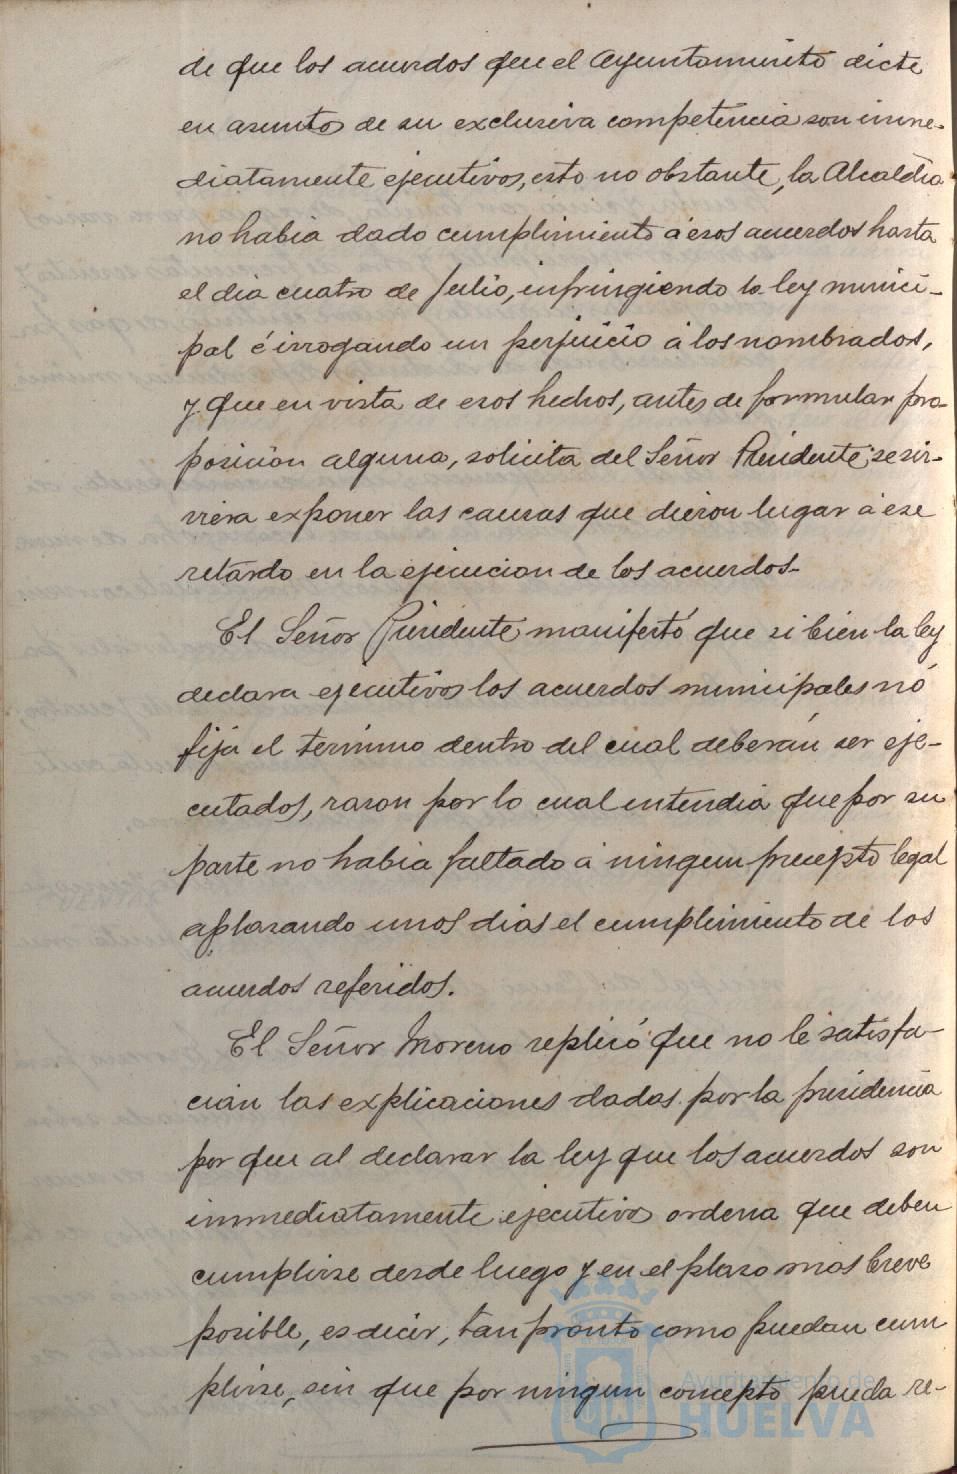 de que los acuerdos que el Ayuntamiento dicte
en asuntos de su exclusiva competencia son inme-
diatamente ejecutivos, esto no obstante, la Alcaldia
no habia dado cumplimiento á esos acuerdos hasta
el dia cuatro de Julio, infringiendo la ley munici-
pal é irrogando un perjuicio á los nombrados,
y que en vista de esos hechos, antes de formular pro-
posicion alguna, solicita del Señor Presidente se sir-
viera exponer las causas que dieron lugar á ese
retardo en la ejecucion de los acuerdos-
El Señor Presidente manifestó que si bien la ley
declara ejecutivos los acuerdos municipales nó
fija el termino dentro del cual deberán ser eje-
cutados, rason por lo cual entendia que por su
parte no habia faltado á ningun precepto legal
aplasando unos dias el cumplimiento de los
acuerdos referidos.
El Señor Moreno replicó que no le satisfa-
cian las explicaciones dadas por la presidencia
por que al declarar la ley que los acuerdos son
inmediatamente ejecutivos ordena que deben
cumplirse desde luego y en el plaso mas breve
posible, es decir, tan pronto como puedan cum
plirse, sin que por ningun concepto pueda re-
Ayuntamiento de
HUELVA